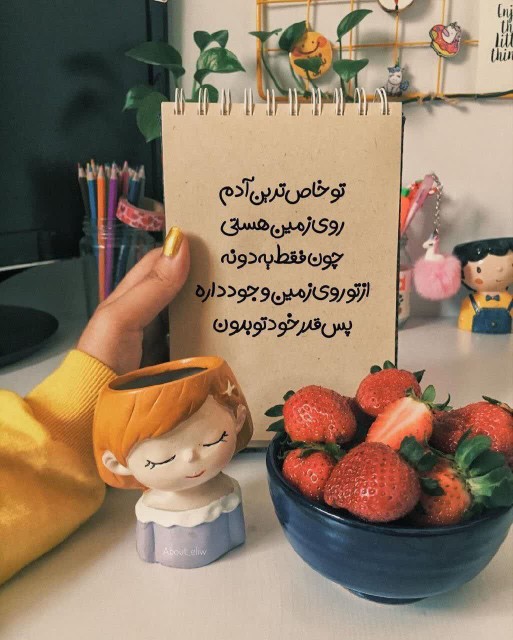 تو خاص ترین آدم
روی زمین هستی
چون فقط یه دونه
از تو روی زمین وجود داره
پس قدر خودتو بدون
Enj
the
litt
thin
About.eliw